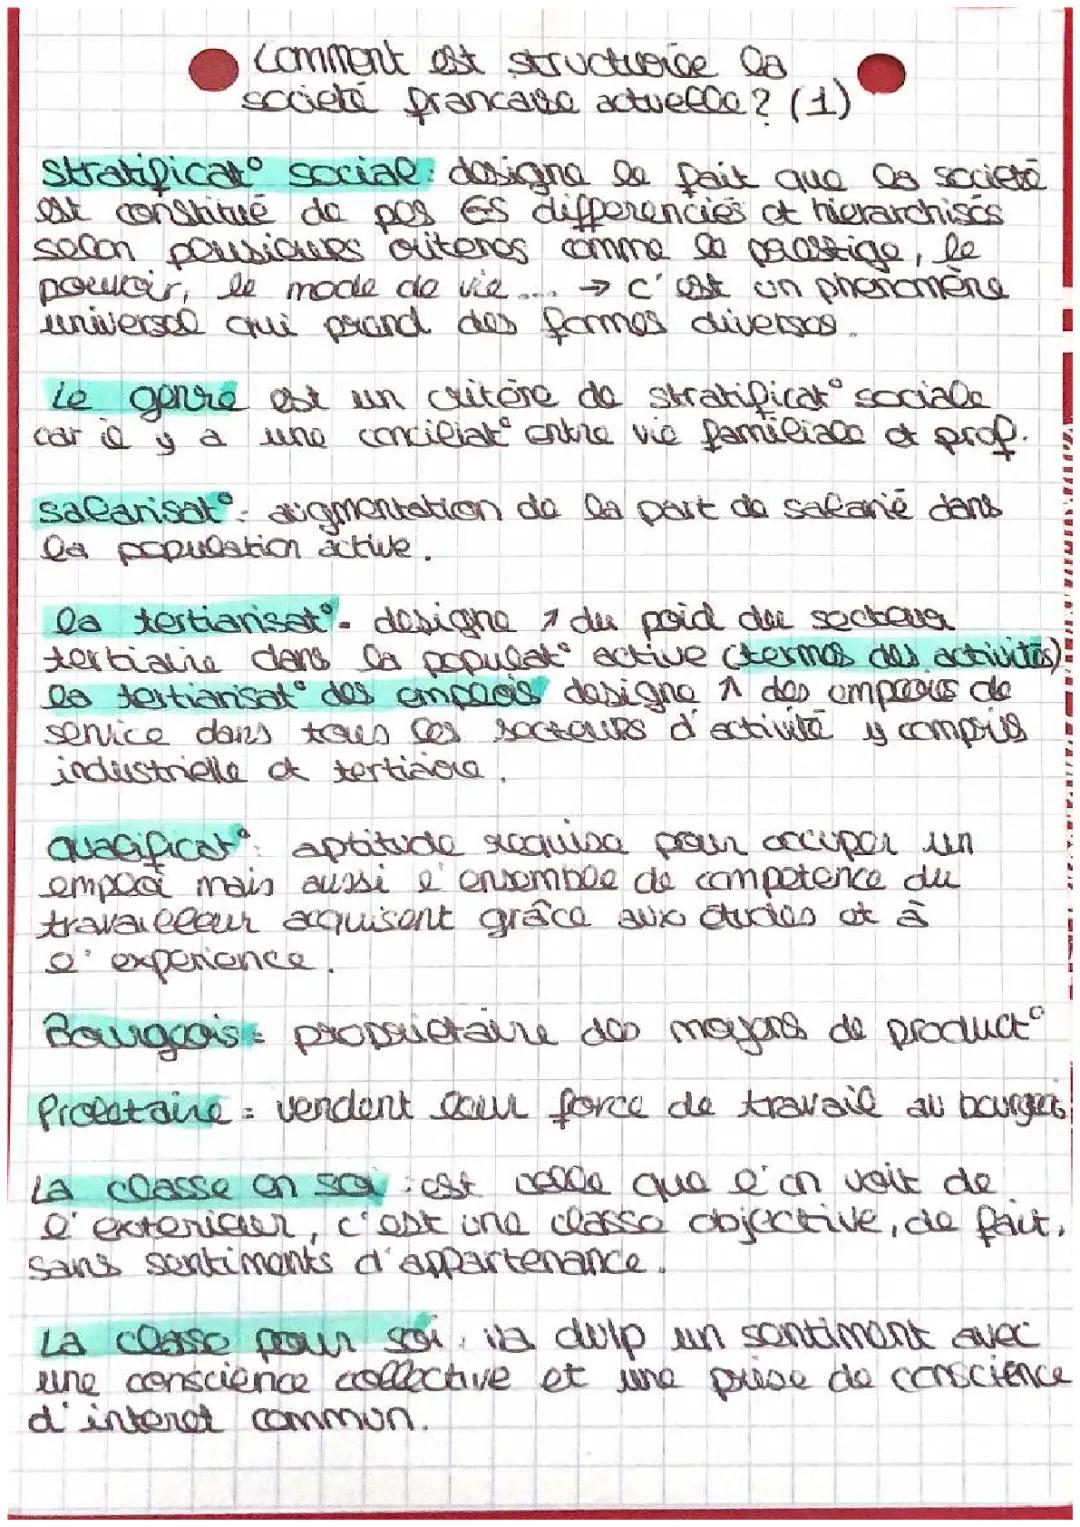 Comment est structurée la
societé francaise actuelle? (1)
stratificat° social: designe le fait que la societé
est constitué de pos GS differenciés et hierarchisés
selon plusieurs criteres comme le prestige, le
pouvoir, le mode de vie.... → c'est un phenomène
universel qui prend des formes diverses.
Le genre est un critère de stratificat° sociale
car il y a une conciliat° entre vie familiale et prof.
salarisat°: augmentation de la part de salarié dans
la population active.
la tertiarisat°- designe ↗ du poid du secteur
tertiaire dans la populat° active (termes des activités)
la tertiarisat° des emplois designe ↗ des emplois de
service dans tous les secteurs d'activité y compris
industrielle et tertiaire.
qualificat°: aptitude requise pour occuper un
emploi mais aussi l'ensemble de competence du
travailleur acquisent grâce aux études et à
l'experience.
Bourgeois= proprietaire des moyens de product°
Proletaire= vendent leur force de travail au bourgeois
La classe en soi: est celle que l'on voit de
l'exterieur, c'est une classe objective, de fait,
sans sentiments d'appartenance.
La classe pour soi, va dvlp un sentiment avec
une conscience collective et une prise de conscience
d'interet commun.